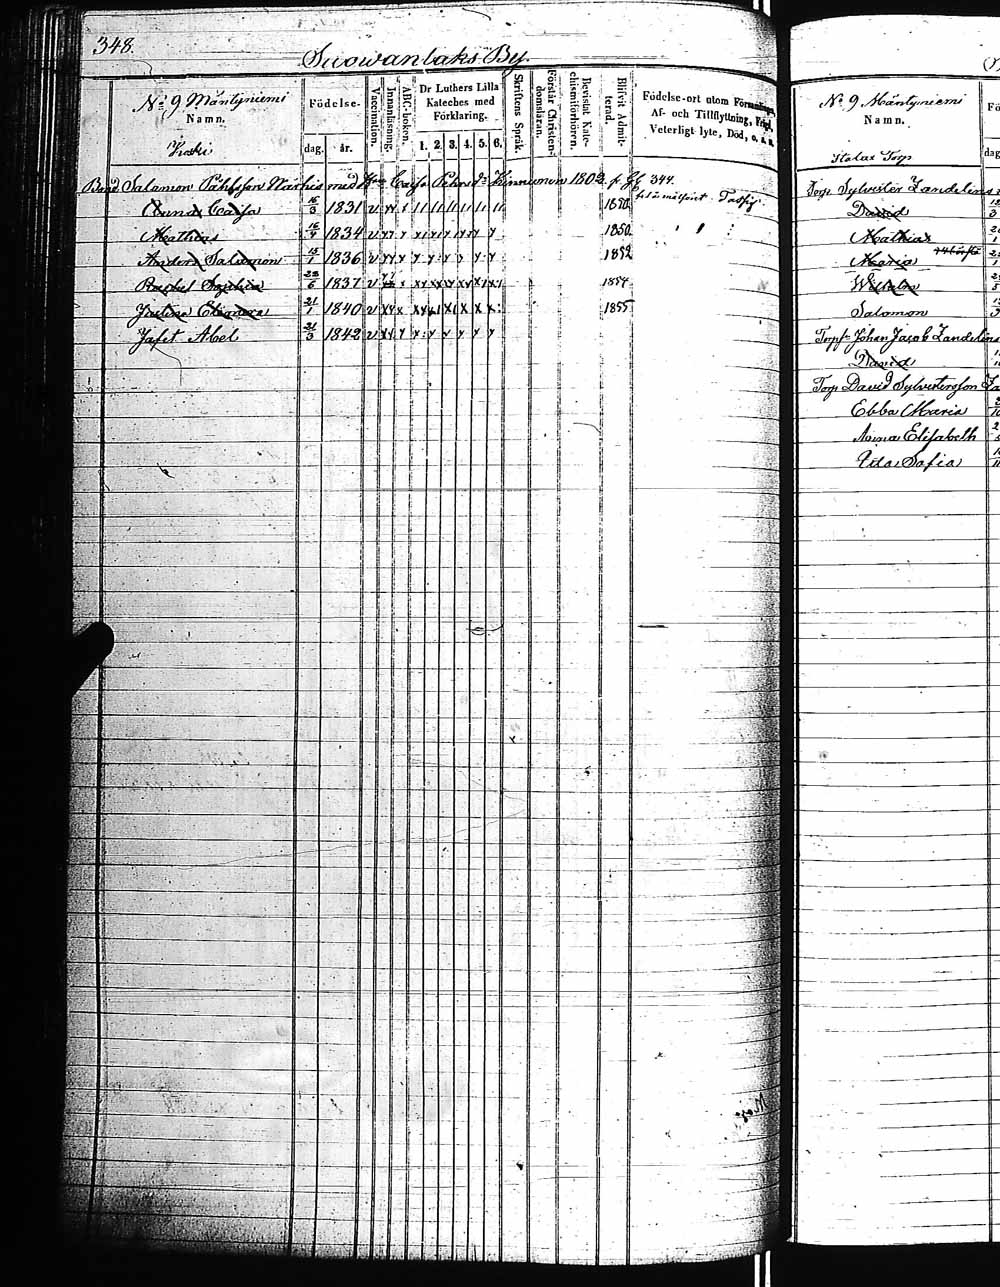 348.
Suowanlaks By.
No 9 Mäntyniemi
Namn.
Koski
Födelse-
dag. år.
Vaccination.
Innanläsning.
ABC-boken.
Dr Luthers Lilla
Kateches med
Förklaring.
1. 2. 3. 4. 5. 6.
Skriftens Språk.
Förstår Christen-
domsläran.
Bevistat Kate-
chismiförhören.
Blifvit Admit-
terad.
Födelse-ort utom Församlingen,
Af- och Tillflyttning, Frägd,
Veterligt lyte, Död, o. s. v.
Salomon Påhlsson med Hu Caisa Pehrsdr Kinnunen 1802 344.
Anna Caisa 16/3 1831 v 1850
Mathias 16/4 1834 v x x x x x x x 1850
Anders Salomon 15/1 1836 v x x x x x x x 1852
Rachel Sophia 22/6 1837 v x x x x x x 1854
Justina Eleonora 21/1 1840 v x x x x x x x x x 1855
Jafet Abel 21/3 1842 v x x x x x x x x
No 9 Mäntyniemi
Namn.
Torp
Torp Sylvester Zandelin
David
Mathias
Maria
Wilhelm
Salomon
Johan Jacob Zandelin
David
Torp David Sylvestersson
Ebba Maria
Anna Elisabeth
Uta Sofia